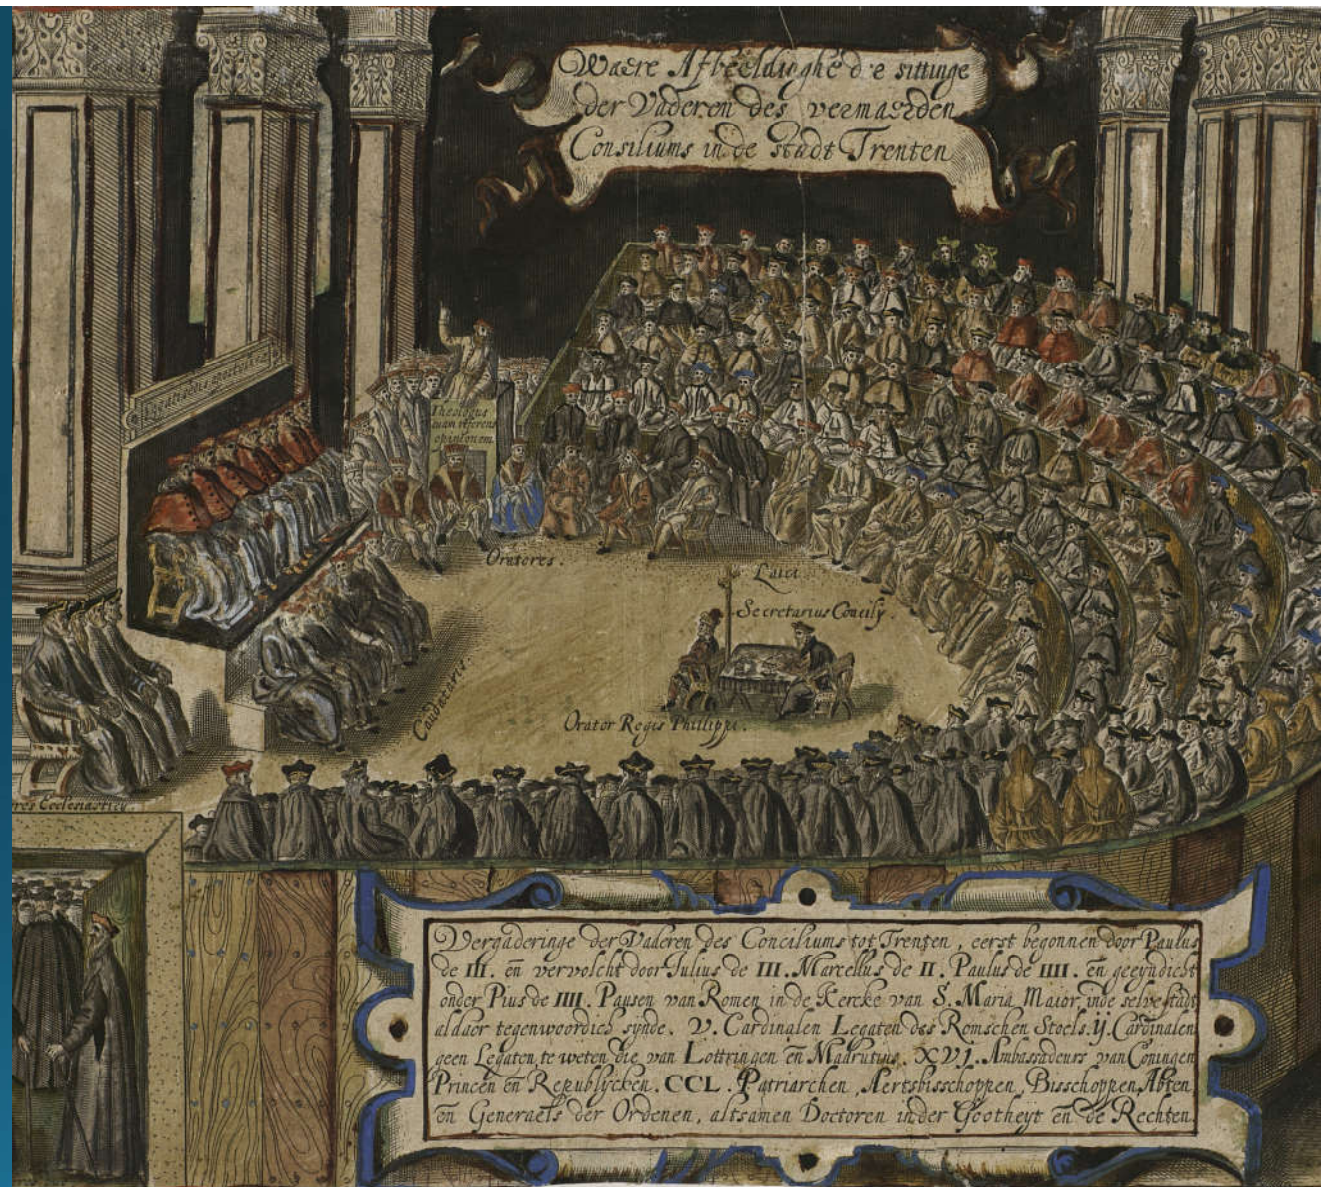 Waere Afbeeldighe d'e sittinge
der Vaderen des vermaerden
Consiliums in de stadt Trenten
Theologus
suam referens
opinionem
Oratores.
Laici
Secretarius Concilÿ.
Caudataris.
Orator Regis Phillippi.
res Ecclesiasticy.
Vergaderinge der Vaderen des Conciliums tot Trenten, eerst begonnen door Paulus
de III. en̄ vervolcht door Julius de III. Marcellus de II. Paulus de IIII. en̄ geeyndicht
onder Pius de IIII. Pausen van Romen in de Kercke van S. Maria Maior, inde selve stadt
aldaer tegenwoordich synde. V. Cardinalen Legaten des Romschen Stoels. ij. Cardinalen
geen Legaten te weten die van Lottringen en̄ Madrutius. XVJ. Ambassadeurs van Coningen
Princen en̄ Republÿcken. CCL. Patriarchen, Aertsbisschoppen, Bisschoppen, Abten
en̄ Generaels der Ordenen, altsamen Doctoren inder Gootheyt en̄ de Rechten